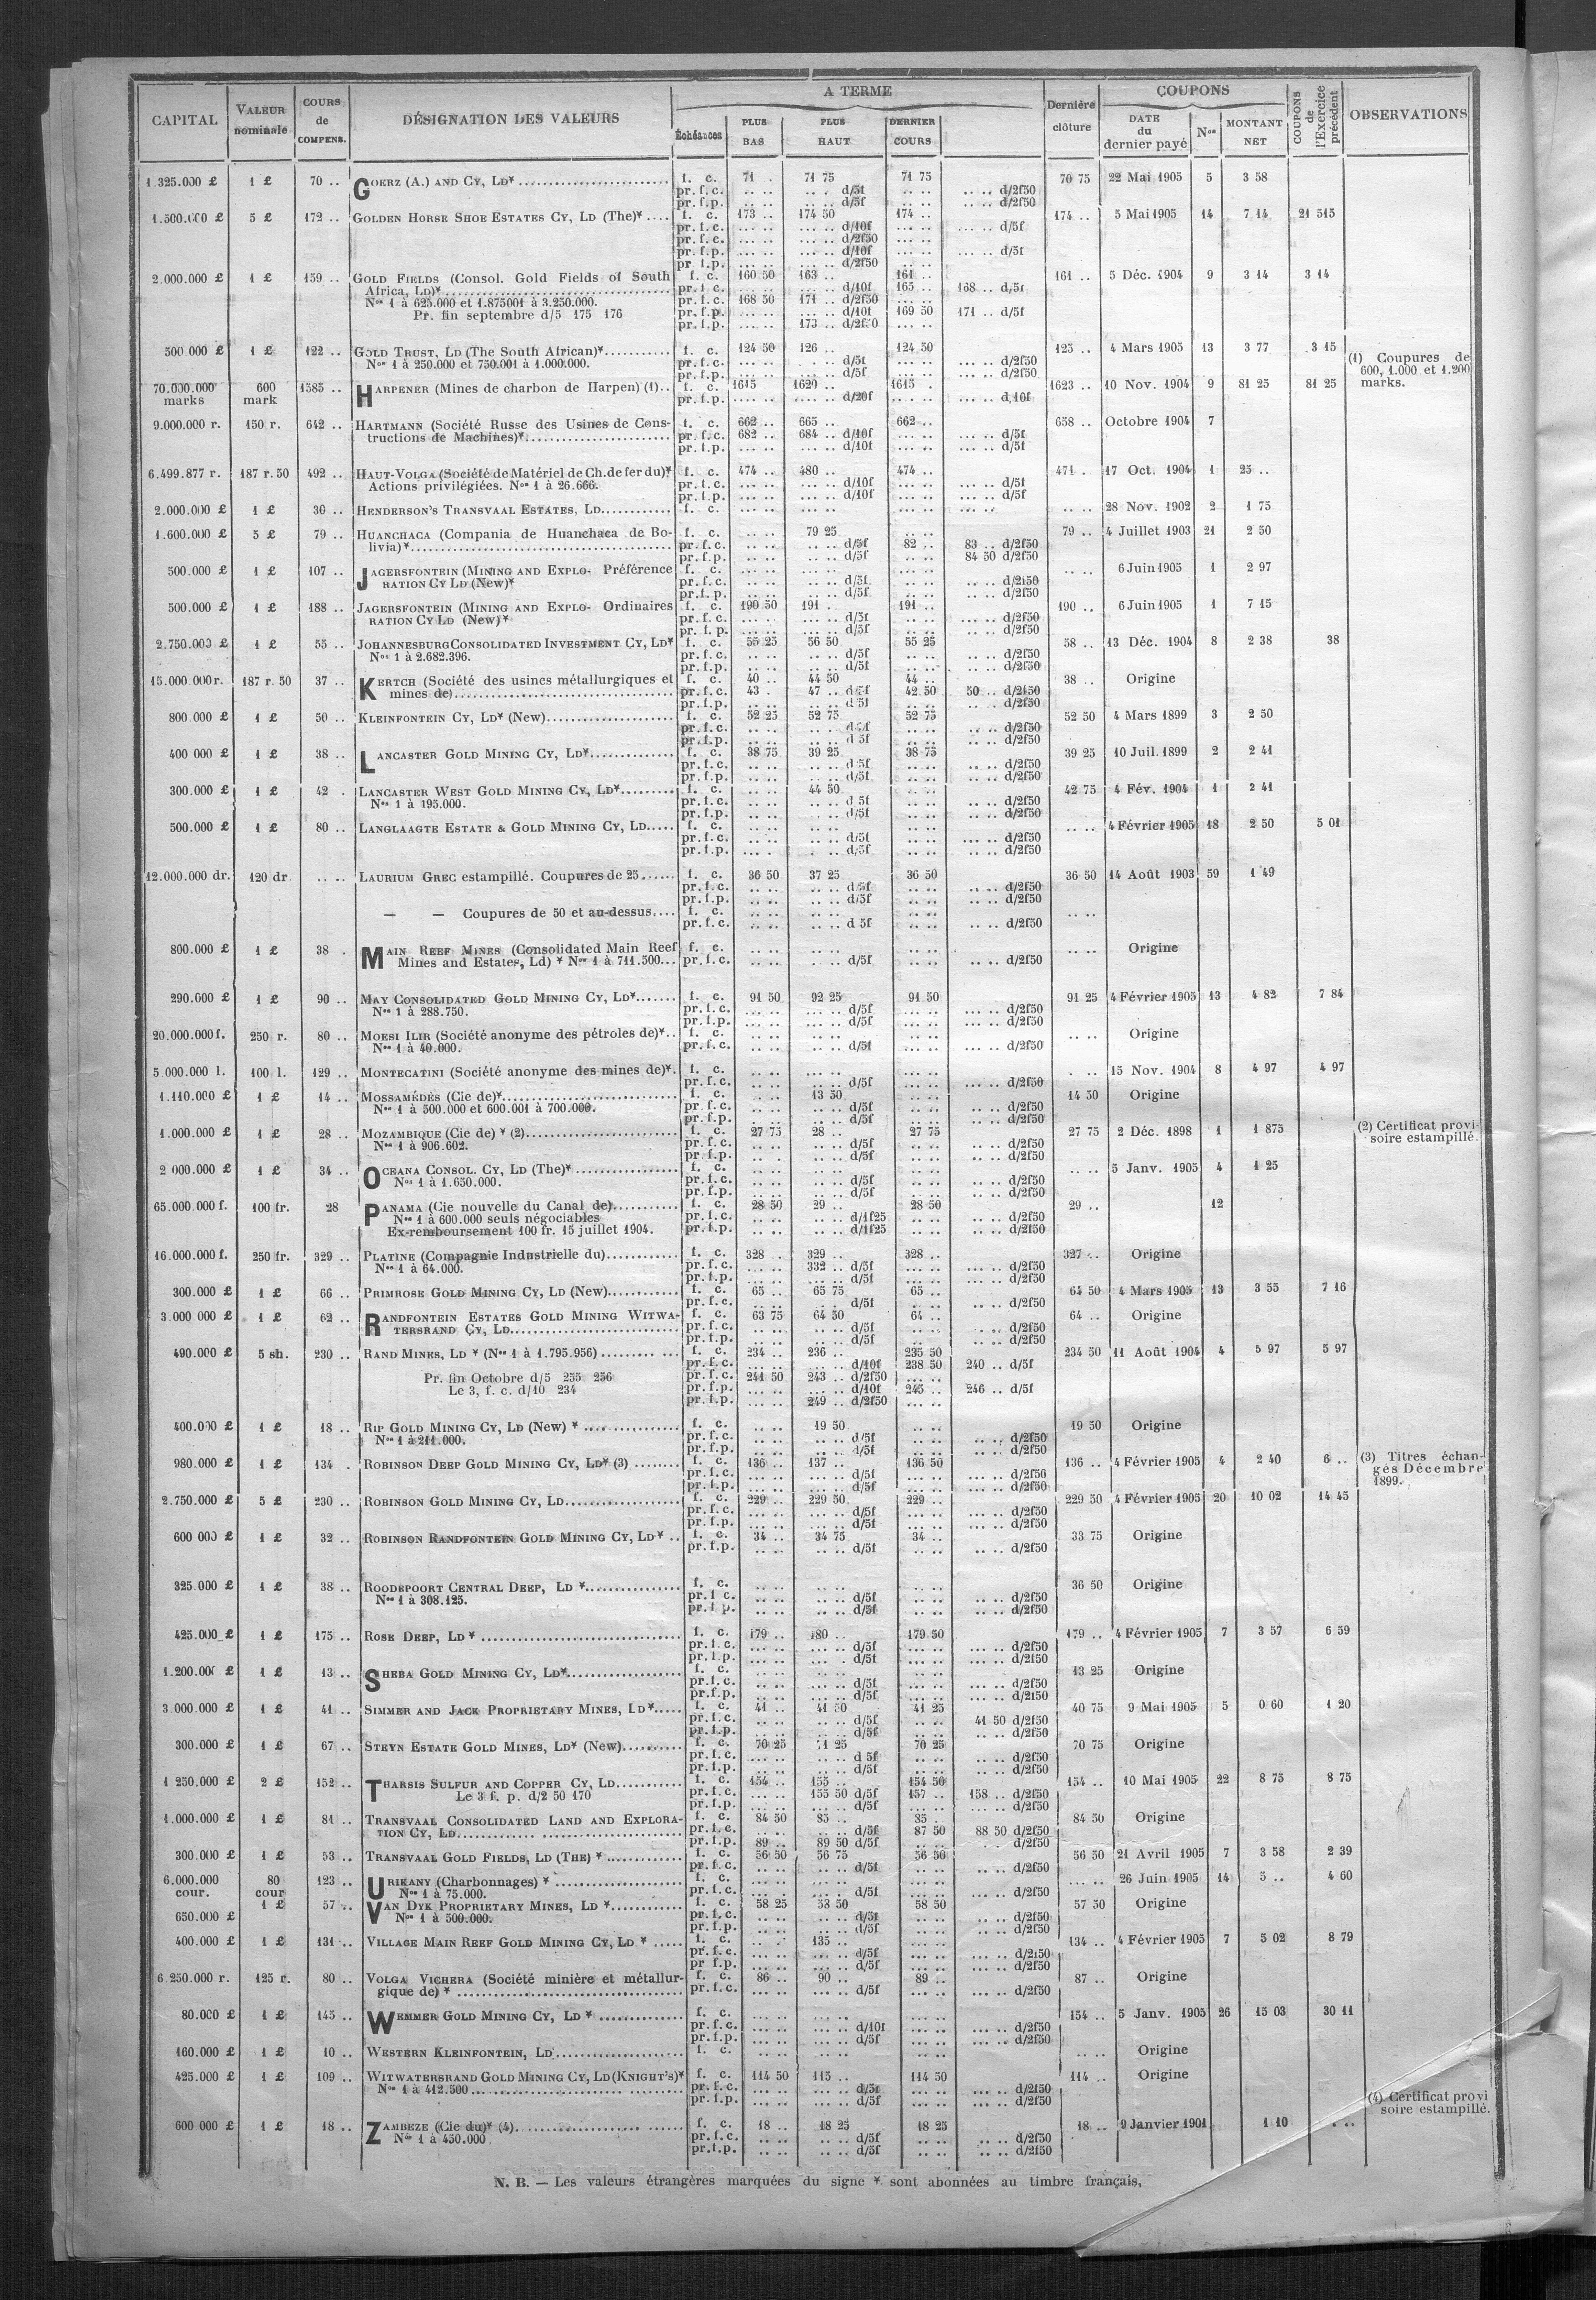 CAPITAL | VALEUR nominale | COURS de COMPENS. | DÉSIGNATION DES VALEURS | A TERME | Dernière clôture | COUPONS | COUPONS de l'Exercice précédent | OBSERVATIONS
Échéances | PLUS BAS | PLUS HAUT | DERNIER COURS | DATE du dernier payé | Nos | MONTANT NET
1.325.000 £ | 1 £ | 70 .. | GOERZ (A.) AND CY, LD* | f. c. | 71 . | 71 75 | 71 75 | 70 75 | 22 Mai 1905 | 5 | 3 58
pr. f. c. | d/5f | d/2f50
pr. f. p. | d/5f | d/2f50
1.500.000 £ | 5 £ | 172 .. | GOLDEN HORSE SHOE ESTATES CY, LD (The)* | f. c. | 173 .. | 174 50 | 174 .. | 174 .. | 5 Mai 1905 | 14 | 7 14 | 21 515
pr. f. c. | d/10f | d/5f
pr. f. c. | d/2f50
pr. f. p. | d/10f | d/5f
pr. f. p. | d/2f50
2.000.000 £ | 1 £ | 159 .. | GOLD FIELDS (Consol. Gold Fields of South | f. c. | 160 50 | 163 .. | 161 .. | 161 .. | 5 Déc. 1904 | 9 | 3 14 | 3 14
Africa, LD)* | pr. f. c. | d/10f | 165 .. | 168 .. d/5f
Nos 1 à 625.000 et 1.875001 à 3.250.000. | pr. f. c. | 168 50 | 171 .. d/2f50
Pr. fin septembre d/5 175 176 | pr. f. p. | d/10f | 169 50 | 171 .. d/5f
pr. f. p. | 173 .. d/2f50
500.000 £ | 1 £ | 122 .. | GOLD TRUST, LD (The South African)* | f. c. | 124 50 | 126 .. | 124 50 | 125 .. | 4 Mars 1905 | 13 | 3 77 | 3 15
Nos 1 à 250.000 et 750.001 à 1.000.000. | pr. f. c. | d/5f | d/2f50 | (1) Coupures de 600, 1.000 et 1.200 marks.
pr. f. p. | d/5f | d/2f50
70.000.000 marks | 600 mark | 1585 .. | HARPENER (Mines de charbon de Harpen) (1) .. | f. c. | 1615 | 1620 .. | 1615 . | 1623 .. | 10 Nov. 1904 | 9 | 81 25 | 81 25
pr. f. p. | d/20f | d/10f
9.000.000 r. | 150 r. | 642 .. | HARTMANN (Société Russe des Usines de Cons- | f. c. | 662 .. | 665 .. | 662 .. | 658 .. | Octobre 1904 | 7
tructions de Machines)* | pr. f. c. | 682 .. | 684 .. d/10f | d/5f
pr. f. p. | d/10f | d/5f
6.499.877 r. | 187 r. 50 | 492 .. | HAUT-VOLGA (Société de Matériel de Ch. de fer du)* | f. c. | 474 .. | 480 .. | 474 .. | 471 . | 17 Oct. 1904 | 1 | 25 ..
Actions privilégiées. Nos 1 à 26.666. | pr. f. c. | d/10f | d/5f
pr. f. p. | d/10f | d/5f
2.000.000 £ | 1 £ | 30 .. | HENDERSON'S TRANSVAAL ESTATES, LD | f. c. | 28 Nov. 1902 | 2 | 1 75
1.600.000 £ | 5 £ | 79 .. | HUANCHACA (Compania de Huanchaca de Bo- | f. c. | 79 25 | 79 .. | 4 Juillet 1903 | 21 | 2 50
livia)* | pr. f. c. | d/5f | 82 .. | 83 .. d/2f50
pr. f. p. | d/5f | 84 50 d/2f50
500.000 £ | 1 £ | 107 .. | JAGERSFONTEIN (MINING AND EXPLO- Préférence | f. c. | 6 Juin 1905 | 1 | 2 97
RATION CY LD (New)* | pr. f. c. | d/5f | d/2f50
pr. f. p. | d/5f | d/2f50
500.000 £ | 1 £ | 188 .. | JAGERSFONTEIN (MINING AND EXPLO- Ordinaires | f. c. | 190 50 | 191 .. | 191 .. | 190 .. | 6 Juin 1905 | 1 | 7 15
RATION CY LD (New)* | pr. f. c. | d/5f | d/2f50
pr. f. p. | d/5f | d/2f50
2.750.000 £ | 1 £ | 55 .. | JOHANNESBURG CONSOLIDATED INVESTMENT CY, LD* | f. c. | 55 25 | 56 50 | 55 25 | 58 .. | 13 Déc. 1904 | 8 | 2 38 | 38
Nos 1 à 2.682.396. | pr. f. c. | d/5f | d/2f50
pr. f. p. | d/5f | d/2f50
15.000.000 r. | 187 r. 50 | 37 .. | KERTCH (Société des usines métallurgiques et | f. c. | 40 .. | 44 50 | 44 .. | 38 .. | Origine
mines de) | pr. f. c. | 43 . | 47 .. d/5f | 42 50 | 50 .. d/2f50
pr. f. p. | d/5f | d/2f50
800.000 £ | 1 £ | 50 .. | KLEINFONTEIN CY, LD* (New) | f. c. | 52 25 | 52 75 | 52 75 | 52 50 | 4 Mars 1899 | 3 | 2 50
pr. f. c. | d/5f | d/2f50
pr. f. p. | d 5f | d/2f50
400 000 £ | 1 £ | 38 .. | LANCASTER GOLD MINING CY, LD* | f. c. | 38 75 | 39 25 | 38 75 | 39 25 | 10 Juil. 1899 | 2 | 2 41
pr. f. c. | d 5f | d/2f50
pr. f. p. | d/5f | d/2f50
300.000 £ | 1 £ | 42 . | LANCASTER WEST GOLD MINING CY, LD* | f. c. | 44 50 | 42 75 | 4 Fév. 1904 | 1 | 2 41
Nos 1 à 195.000. | pr. f. c. | d 5f | d/2f50
pr. f. p. | d/5f | d/2f50
500.000 £ | 1 £ | 80 .. | LANGLAAGTE ESTATE & GOLD MINING CY, LD | f. c. | 4 Février 1905 | 18 | 2 50 | 5 01
pr. f. c. | d/5f | d/2f50
pr. f. p. | d/5f | d/2f50
12.000.000 dr. | 120 dr | .. .. | LAURIUM GREC estampillé. Coupures de 25 | f. c. | 36 50 | 37 25 | 36 50 | 36 50 | 14 Août 1903 | 59 | 1 49
pr. f. c. | d/5f | d/2f50
pr. f. p. | d/5f | d/2f50
— — Coupures de 50 et au-dessus | f. c.
pr. f. c. | d 5f | d/2f50
800.000 £ | 1 £ | 38 . | MAIN REEF MINES (Consolidated Main Reef | f. c. | Origine
Mines and Estates, Ld) * Nos 1 à 711.500 | pr. f. c. | d/5f | d/2f50
290.000 £ | 1 £ | 90 .. | MAY CONSOLIDATED GOLD MINING CY, LD* | f. c. | 91 50 | 92 25 | 91 50 | 91 25 | 4 Février 1905 | 13 | 4 82 | 7 84
Nos 1 à 288.750. | pr. f. c. | d/5f | d/2f50
pr. f. p. | d/5f | d/2f50
20.000.000 f. | 250 r. | 80 .. | MOESI ILIR (Société anonyme des pétroles de)* | f. c. | Origine
Nos 1 à 40.000. | pr. f. c. | d/5f | d/2f50
5.000.000 l. | 100 l. | 129 .. | MONTECATINI (Société anonyme des mines de)* | f. c. | 15 Nov. 1904 | 8 | 4 97 | 4 97
pr. f. c. | d/5f | d/2f50
1.110.000 £ | 1 £ | 14 .. | MOSSAMÉDÈS (Cie de)* | f. c. | 13 50 | 14 50 | Origine
Nos 1 à 500.000 et 600.001 à 700.000. | pr. f. c. | d/5f | d/2f50
pr. f. p. | d/5f | d/2f50
1.000.000 £ | 1 £ | 28 .. | MOZAMBIQUE (Cie de) * (2) | f. c. | 27 75 | 28 .. | 27 75 | 27 75 | 2 Déc. 1898 | 1 | 1 875 | (2) Certificat provi soire estampillé.
Nos 1 à 906.602. | pr. f. c. | d/5f | d/2f50
pr. f. p. | d/5f | d/2f50
2 000.000 £ | 1 £ | 34 .. | OCEANA CONSOL. CY, LD (The)* | f. c. | 5 Janv. 1905 | 4 | 1 25
Nos 1 à 1.650.000. | pr. f. c. | d/5f | d/2f50
pr. f. p. | d/5f | d/2f50
65.000.000 f. | 100 fr. | 28 | PANAMA (Cie nouvelle du Canal de) | f. c. | 28 50 | 29 .. | 28 50 | 29 .. | 12
Nos 1 à 600.000 seuls négociables | pr. f. c. | d/1f25 | d/2f50
Ex-remboursement 100 fr. 15 juillet 1904. | pr. f. p. | d/1f25 | d/2f50
16.000.000 f. | 250 fr. | 329 .. | PLATINE (Compagnie Industrielle du) | f. c. | 328 . | 329 .. | 328 .. | 327 .. | Origine
Nos 1 à 64.000. | pr. f. c. | 332 .. d/5f | d/2f50
pr. f. p. | d/5f | d/2f50
300.000 £ | 1 £ | 66 .. | PRIMROSE GOLD MINING CY, LD (New) | f. c. | 65 .. | 65 75 | 65 .. | 64 50 | 4 Mars 1905 | 13 | 3 55 | 7 16
pr. f. c. | d/5f | d/2f50
3.000 000 £ | 1 £ | 62 .. | RANDFONTEIN ESTATES GOLD MINING WITWA- | f. c. | 63 75 | 64 50 | 64 .. | 64 .. | Origine
TERSRAND CY, LD | pr. f. c. | d/5f | d/2f50
pr. f. p. | d/5f | d/2f50
490.000 £ | 5 sh. | 230 .. | RAND MINES, LD * (Nos 1 à 1.795.956) | f. c. | 234 .. | 236 .. | 235 50 | 234 50 | 11 Août 1904 | 4 | 5 97 | 5 97
pr. f. c. | d/10f | 238 50 | 240 .. d/5f
Pr. fin Octobre d/5 255 256 | pr. f. c. | 241 50 | 243 .. d/2f50
Le 3, f. c. d/10 234 | pr. f. p. | d/10f | 245 .. | 246 .. d/5f
pr. f. p. | 249 .. d/2f50
400.000 £ | 1 £ | 18 .. | RIP GOLD MINING CY, LD (New) * | f. c. | 19 50 | 19 50 | Origine
Nos 1 à 211.000. | pr. f. c. | d/5f | d/2f50
pr. f. p. | d/5f | d/2f50
980.000 £ | 1 £ | 134 . | ROBINSON DEEP GOLD MINING CY, LD* (3) | f. c. | 136 .. | 137 .. | 136 50 | 136 .. | 4 Février 1905 | 4 | 2 40 | 6 .. | (3) Titres échan- gés Décembre 1899.
pr. f. c. | d/5f | d/2f50
pr. f. p. | d/5f | d/2f50
2.750.000 £ | 5 £ | 230 .. | ROBINSON GOLD MINING CY, LD | f. c. | 229 .. | 229 50 | 229 .. | 229 50 | 4 Février 1905 | 20 | 10 02 | 14 45
pr. f. c. | d/5f | d/2f50
pr. f. p. | d/5f | d/2f50
600 000 £ | 1 £ | 32 .. | ROBINSON RANDFONTEIN GOLD MINING CY, LD* | f. c. | 34 .. | 34 75 | 34 .. | 33 75 | Origine
pr. f. p. | d/5f | d/2f50
325.000 £ | 1 £ | 38 .. | ROODEPOORT CENTRAL DEEP, LD * | f. c. | 36 50 | Origine
Nos 1 à 308.125. | pr. f c. | d/5f | d/2f50
pr. f p. | d/5f | d/2f50
425.000 £ | 1 £ | 175 .. | ROSE DEEP, LD * | f. c. | 179 .. | 180 .. | 179 50 | 179 .. | 4 Février 1905 | 7 | 3 57 | 6 59
pr. f. c. | d/5f | d/2f50
pr. f. p. | d/5f | d/2f50
1.200.000 £ | 1 £ | 13 .. | SHEBA GOLD MINING CY, LD* | f. c. | 13 25 | Origine
pr. f. c. | d/5f | d/2f50
pr. f. p. | d/5f | d/2f50
3.000.000 £ | 1 £ | 41 .. | SIMMER AND JACK PROPRIETARY MINES, LD* | f. c. | 41 .. | 41 50 | 41 25 | 40 75 | 9 Mai 1905 | 5 | 0 60 | 1 20
pr. f. c. | d/5f | 41 50 d/2f50
pr. f. p. | d/5f | d/2f50
300.000 £ | 1 £ | 67 .. | STEYN ESTATE GOLD MINES, LD* (New) | f. c. | 70 25 | 71 25 | 70 25 | 70 75 | Origine
pr. f. c. | d 5f | d/2f50
pr. f. p. | d/5f | d/2f50
1 250.000 £ | 2 £ | 152 .. | THARSIS SULFUR AND COPPER CY, LD | f. c. | 154 .. | 155 .. | 154 50 | 154 .. | 10 Mai 1905 | 22 | 8 75 | 8 75
Le 3 f. p. d/2 50 170 | pr. f. c. | 155 50 d/5f | 157 .. | 158 .. d/2f50
pr. f. p. | d/5f | d/2f50
1.000.000 £ | 1 £ | 81 .. | TRANSVAAL CONSOLIDATED LAND AND EXPLORA- | f. c. | 84 50 | 85 .. | 85 . | 84 50 | Origine
TION CY, LD | pr. f. c. | d/5f | 87 50 | 88 50 d/2f50
pr. f. p. | 89 .. | 89 50 d/5f | d/2f50
300.000 £ | 1 £ | 53 .. | TRANSVAAL GOLD FIELDS, LD (THE) * | f. c. | 56 50 | 56 75 | 56 50 | 56 50 | 21 Avril 1905 | 7 | 3 58 | 2 39
pr. f. c. | d/5f | d/2f50
6.000.000 cour. | 80 cour | 123 .. | URIKANY (Charbonnages) * | f. c. | 26 Juin 1905 | 14 | 5 .. | 4 60
Nos 1 à 75.000. | pr. f. c. | d/5f | d/2f50
650.000 £ | 1 £ | 57 .. | VAN DYK PROPRIETARY MINES, LD * | f. c. | 58 25 | 58 50 | 58 50 | 57 50 | Origine
Nos 1 à 500.000. | pr. f. c. | d/5f | d/2f50
pr. f. p. | d/5f | d/2f50
400.000 £ | 1 £ | 131 .. | VILLAGE MAIN REEF GOLD MINING CY, LD * | f. c. | 135 .. | 134 .. | 4 Février 1905 | 7 | 5 02 | 8 79
pr. f. c. | d/5f | d/2f50
pr f. p. | d/5f | d/2f50
6.250.000 r. | 125 r. | 80 .. | VOLGA VICHERA (Société minière et métallur- | f. c. | 86 .. | 90 .. | 89 .. | 87 .. | Origine
gique de) * | pr. f. c. | d/5f | d/2f50
80.000 £ | 1 £ | 145 .. | WEMMER GOLD MINING CY, LD * | f. c. | 154 .. | 5 Janv. 1905 | 26 | 15 03 | 30 11
pr. f. c. | d/10f | d/2f50
pr. f. p. | d/5f | d/2f50
160.000 £ | 1 £ | 10 .. | WESTERN KLEINFONTEIN, LD | f. c. | Origine
425.000 £ | 1 £ | 109 .. | WITWATERSRAND GOLD MINING CY, LD (KNIGHT'S)* | f. c. | 114 50 | 115 .. | 114 50 | 114 .. | Origine
Nos 1 à 412.500 | pr. f. c. | d/5f | d/2f50
pr. f. p. | d/5f | d/2f50 | (4) Certificat provi soire estampillé.
600 000 £ | 1 £ | 18 .. | ZAMBEZE (Cie du)* (4) | f. c. | 18 .. | 18 25 | 18 25 | 18 .. | 9 Janvier 1901 | 1 10
Nos 1 à 450.000 | pr. f. c. | d/5f | d/2f50
pr. f. p. | d/5f | d/2f50
N. B. — Les valeurs étrangères marquées du signe * sont abonnées au timbre français,